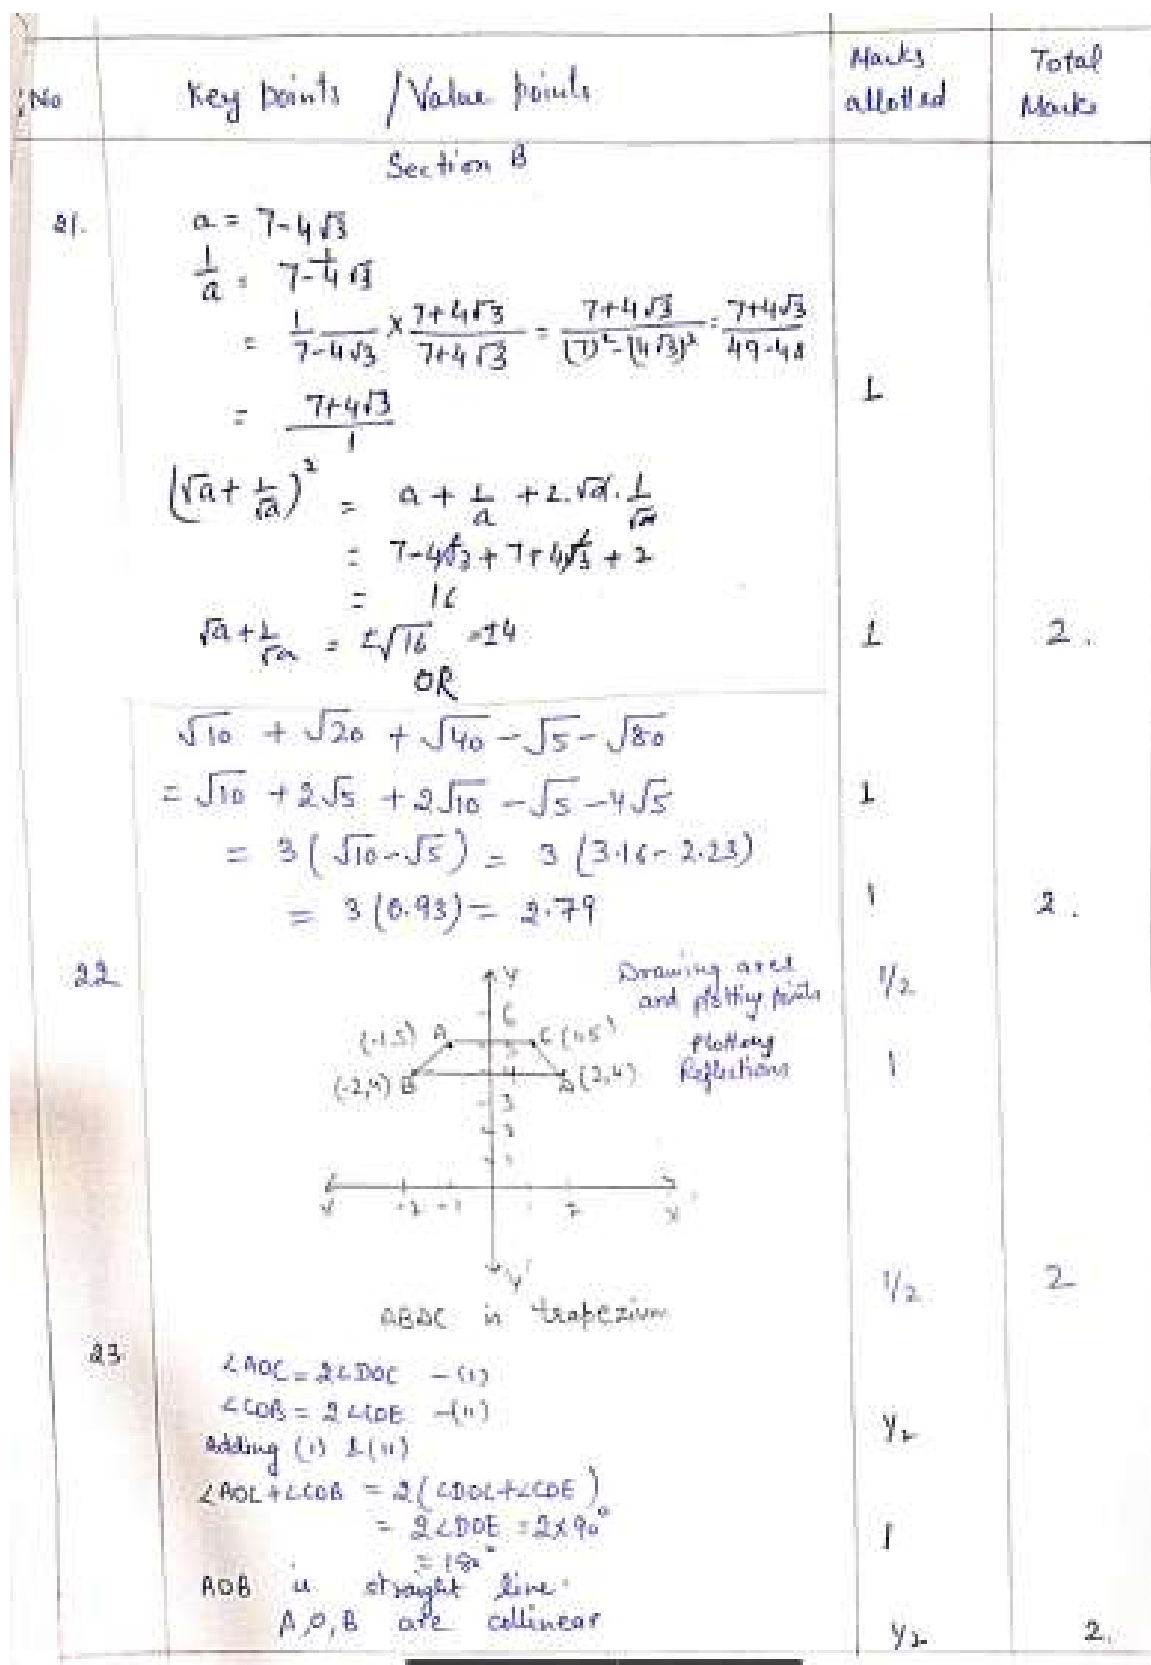 No Key points / Value points Marks allotted Total Marks
Section B
21. a = 7-4√3
1/a = 1/7-4√3
= 1/7-4√3 × 7+4√3/7+4√3 = 7+4√3/(7)²-(4√3)² = 7+4√3/49-48
= 7+4√3/1 1
(√a + 1/√a)² = a + 1/a + 2.√a.1/√a
= 7-4√3 + 7+4√3 + 2
= 16
√a + 1/√a = ±√16 = ±4 1 2.
OR
√10 + √20 + √40 - √5 - √80
= √10 + 2√5 + 2√10 - √5 - 4√5 1
= 3(√10-√5) = 3(3.16-2.23)
= 3(0.93) = 2.79 1 2.
22 Y Drawing axes 1/2
and plotting points
6
(-1,5) A C (1,5) Plotting
5
(-2,4) B 4 D (2,4) Reflections 1
3
2
1
-2 -1 1 2
X
Y'
1/2 2
ABDC is trapezium
23. ∠AOC = 2∠DOC - (i)
∠COB = 2∠COE - (ii)
Adding (i) & (ii) 1/2
∠AOC + ∠COB = 2(∠DOC+∠COE)
= 2∠DOE = 2×90° 1
= 180°
AOB is straight line.
A,O,B are collinear 1/2 2.